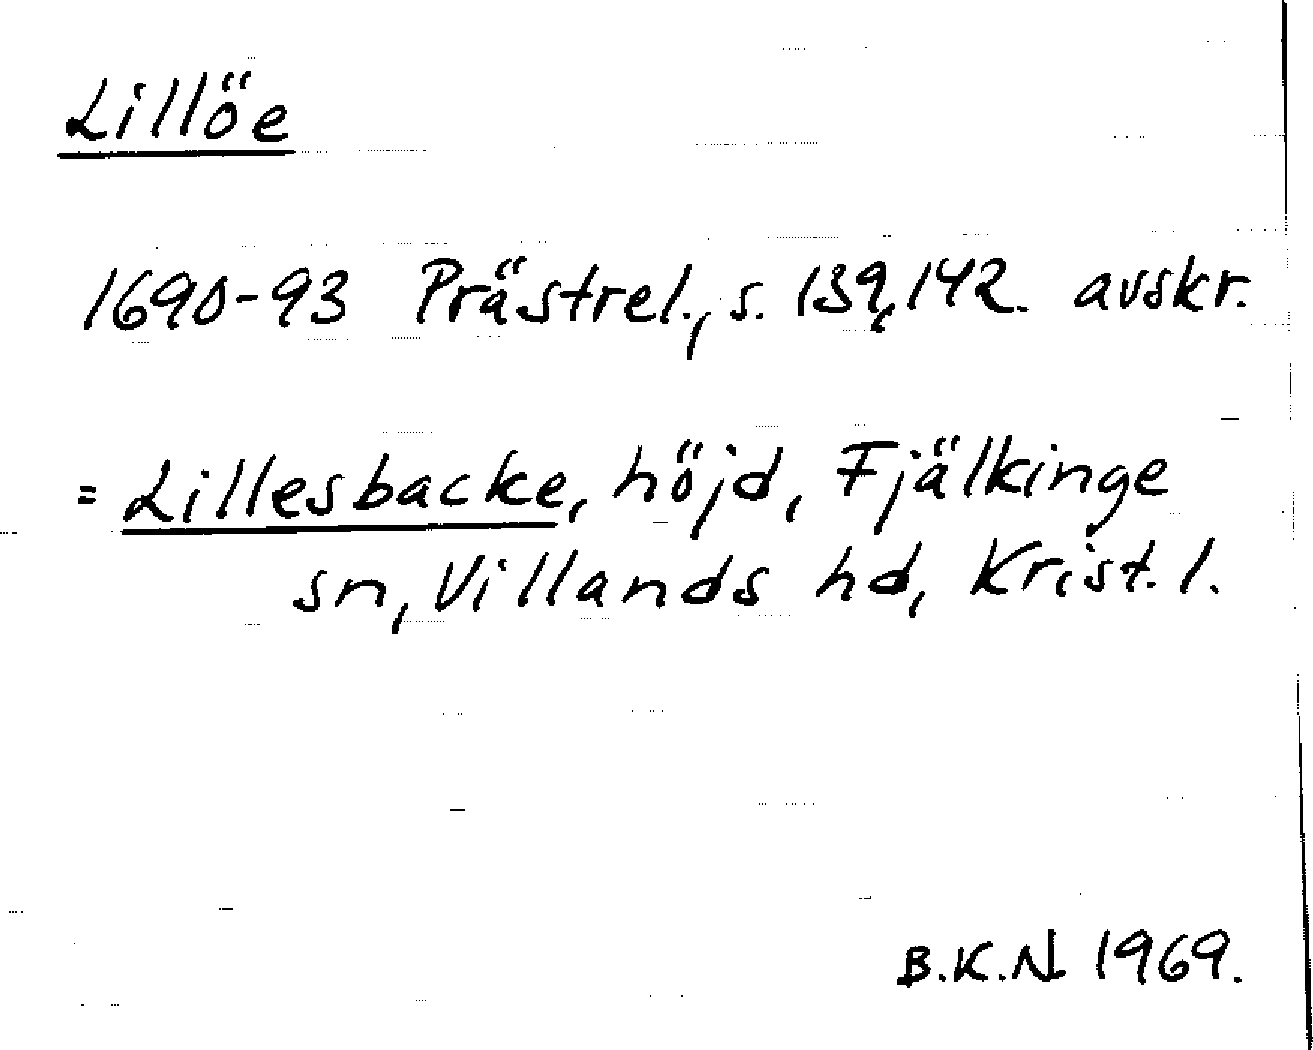 Lillöe
1690-93 Prästrel., s. 139, 142. avskr.
= Lillesbacke, höjd, Fjälkinge
sn, Villands hd, Krist. l.
B.K.N 1969.